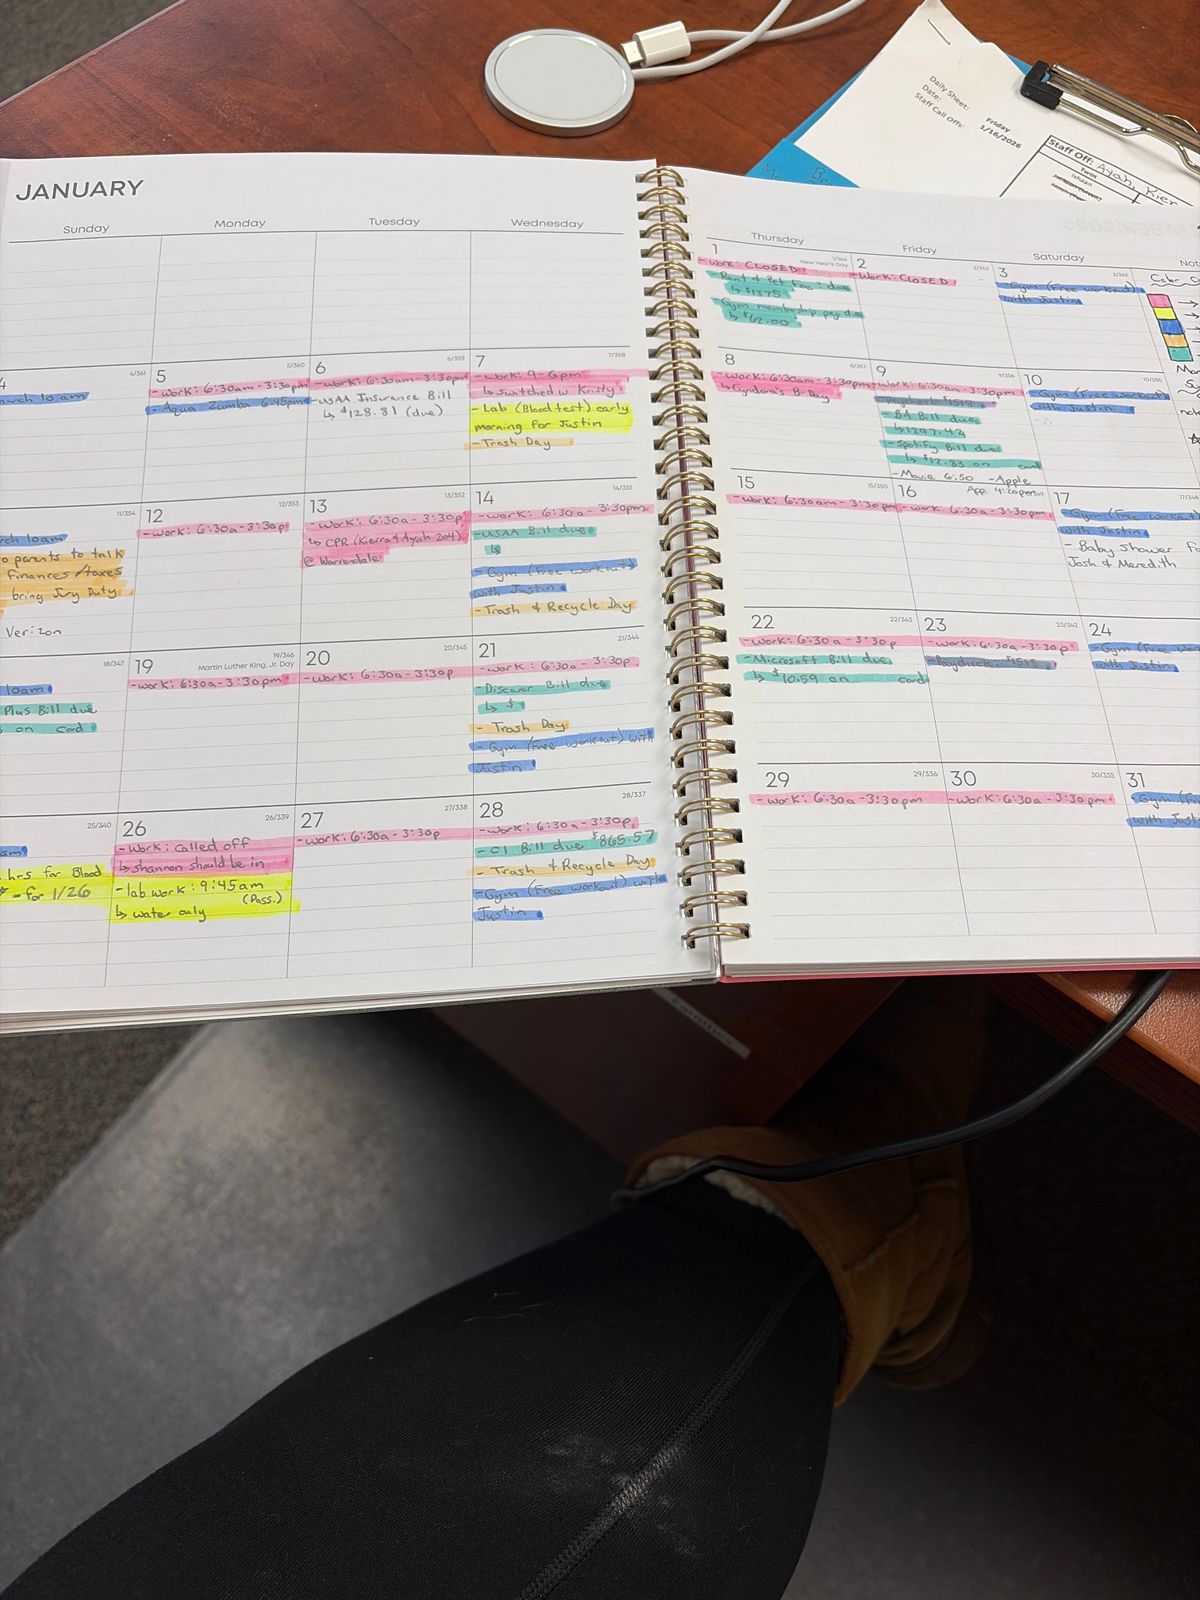 Daily Sheet:
Date:
Staff Call Offs:
Friday
1/16/2026
Staff Off: Ayah, Kier
Twos
Ishaan
JANUARY
Sunday
Monday
Tuesday
Wednesday
Thursday
Friday
Saturday
Not
1
1/364
New Year's Day
-Work: CLOSED
-Rent & Pet Fee: due
↳ $1375
-Gym membership pay due
↳ $62.00
2
2/363
-Work: CLOSED
3
3/362
-Gym (Free workout)
with Justin
4
4/361
urch 10am
5
5/360
-Work: 6:30am-3:30pm
-Aqua Zumba 6:45pm
6
6/359
-Work: 6:30am-3:30pm
-USAA Insurance Bill
↳ $128.81 (due)
7
7/358
-Work: 9-6pm
↳ Switched w Kristy
-Lab (Blood test) early
morning for Justin
-Trash Day
8
8/357
-Work: 6:30am-3:30pm
B-Day
9
9/356
-Work: 6:30am-3:30pm
-Paycheck
-BA Bill due
↳ 1297.42
-Spotify Bill due
↳ $12.83 on card
-Movie 6:50 -Apple
App. 4:20pm
10
10/355
-Gym (Free workout)
with Justin
11/354
rch 10am
o parents to talk
finances/taxes
bring Jury Duty
Verizon
12
12/353
-Work: 6:30a-3:30p
13
13/352
-Work: 6:30a-3:30p
↳ CPR (Kierra & Ayah 204)
@ Warrendale
14
14/351
-Work: 6:30a-3:30pm
-USAA Bill due
↳
-Gym (Free workout)
with Justin
-Trash & Recycle Day
15
15/350
-Work: 6:30am-3:30pm
16
-Work: 6:30a-3:30pm
17
17/348
-Gym (Free workout)
with Justin
-Baby shower f
Josh & Meredith
18/347
10am
Plus Bill due
on card
19
19/346
Martin Luther King, Jr. Day
-Work: 6:30a-3:30pm
20
20/345
-Work: 6:30a-3:30p
21
21/344
-Work: 6:30a-3:30p
-Discover Bill due
↳ $
-Trash Day
-Gym (Free workout) with
Justin
22
22/343
-Work: 6:30a-3:30p
-Microsoft Bill due
↳ $10.59 on card
23
23/342
-Work: 6:30a-3:30p
-Paycheck
24
-Gym (Free Wor
with Justin
25/340
am
hrs for Blood
-for 1/26
26
26/339
-Work: Called off
↳ Shannon should be in
-lab work: 9:45am
(Pass.)
↳ water only
27
27/338
-Work: 6:30a-3:30p
28
28/337
-Work: 6:30a-3:30p
-C1 Bill due $865.57
-Trash & Recycle Day
-Gym (Free workout) with
Justin
29
29/336
-Work: 6:30a-3:30pm
30
30/335
-Work: 6:30a-3:30pm
31
-Gym (Fr
with Just